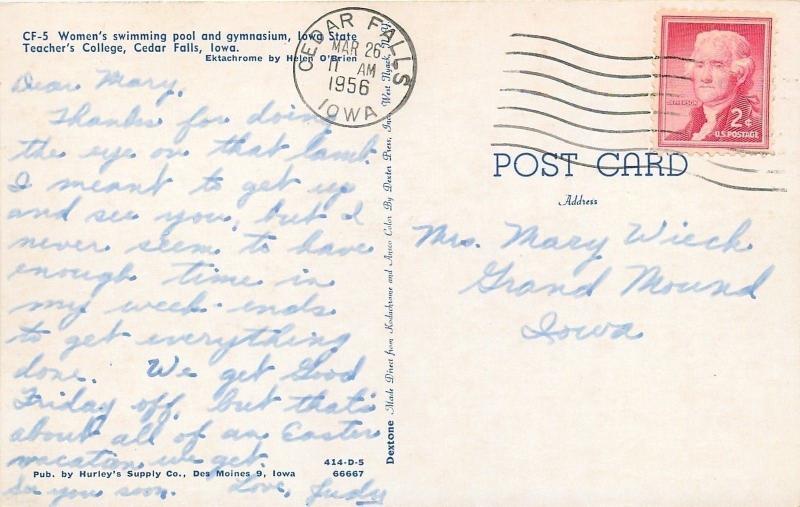 CF-5 Women's swimming pool and gymnasium, Iowa State
Teacher's College, Cedar Falls, Iowa.
Ektachrome by Helen O'Brien
Dear Mary,
Thanks for doing
the eye on that lamb.
I meant to get up
and see you, but I
never seem to have
enough time in
my week-ends
to get everything
done. We get Good
Friday off, but that's
about all of an Easter
vacation we get.
See you soon. Love, Judy
Pub. by Hurley's Supply Co., Des Moines 9, Iowa
414-D-5
66667
Dextone Made Direct from Kodachrome and Ansco Color By Dexter Press, Inc. West Nyack, N.Y.
CEDAR FALLS
MAR 26
11 AM
1956
IOWA
JEFFERSON
2¢
U.S. POSTAGE
POST CARD
Address
Mrs. Mary Wieck
Grand Mound
Iowa